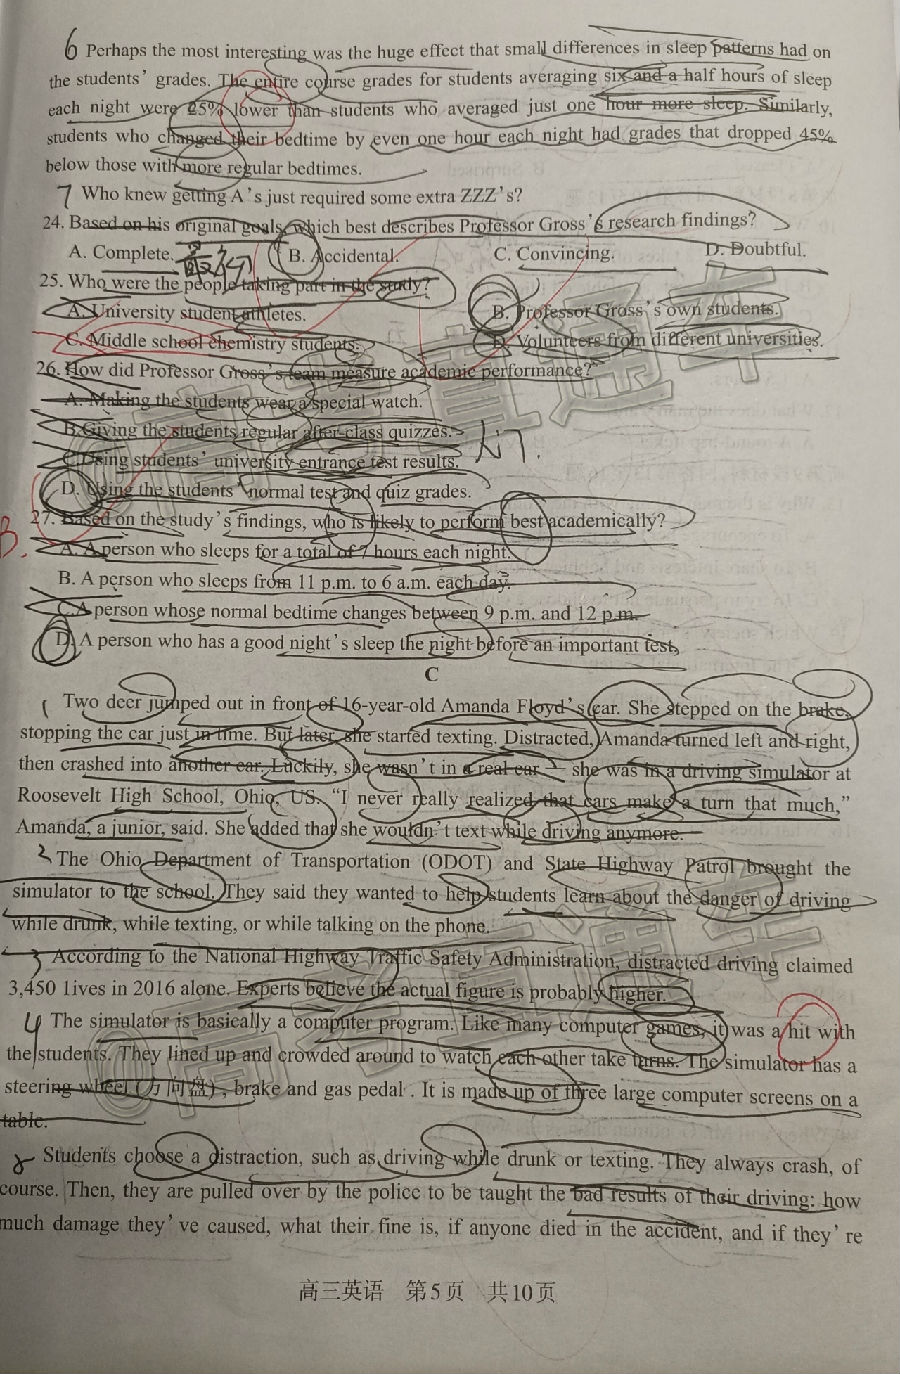 6 Perhaps the most interesting was the huge effect that small differences in sleep patterns had on
the students' grades. The entire course grades for students averaging six and a half hours of sleep
each night were 25% lower than students who averaged just one hour more sleep. Similarly,
students who changed their bedtime by even one hour each night had grades that dropped 45%
below those with more regular bedtimes.
7 Who knew getting A's just required some extra ZZZ's?
24. Based on his original goals, which best describes Professor Gross's research findings?
A. Complete. B. Accidental. C. Convincing. D. Doubtful.
25. Who were the people taking part in the study?
A. University student athletes. B. Professor Gross's own students.
C. Middle school chemistry students. D. Volunteers from different universities.
26. How did Professor Gross's team measure academic performance?
A. Making the students wear a special watch.
B. Giving the students regular after-class quizzes.
C. Using students' university entrance test results.
D. Using the students' normal test and quiz grades.
B.
27. Based on the study's findings, who is likely to perform best academically?
A. A person who sleeps for a total of 7 hours each night.
B. A person who sleeps from 11 p.m. to 6 a.m. each day.
C. A person whose normal bedtime changes between 9 p.m. and 12 p.m.
D. A person who has a good night's sleep the night before an important test.
C
1 Two deer jumped out in front of 16-year-old Amanda Floyd's car. She stepped on the brake,
stopping the car just in time. But later, she started texting. Distracted, Amanda turned left and right,
then crashed into another car. Luckily, she wasn't in a real car — she was in a driving simulator at
Roosevelt High School, Ohio, US. "I never really realized that cars make a turn that much,"
Amanda, a junior, said. She added that she wouldn't text while driving anymore.
2 The Ohio Department of Transportation (ODOT) and State Highway Patrol brought the
simulator to the school. They said they wanted to help students learn about the danger of driving
while drunk, while texting, or while talking on the phone.
3 According to the National Highway Traffic Safety Administration, distracted driving claimed
3,450 lives in 2016 alone. Experts believe the actual figure is probably higher.
4 The simulator is basically a computer program. Like many computer games, it was a hit with
the students. They lined up and crowded around to watch each other take turns. The simulator has a
steering wheel (方向盘), brake and gas pedal . It is made up of three large computer screens on a
table.
Students choose a distraction, such as driving while drunk or texting. They always crash, of
course. Then, they are pulled over by the police to be taught the bad results of their driving: how
much damage they've caused, what their fine is, if anyone died in the accident, and if they're
高三英语 第5页 共10页